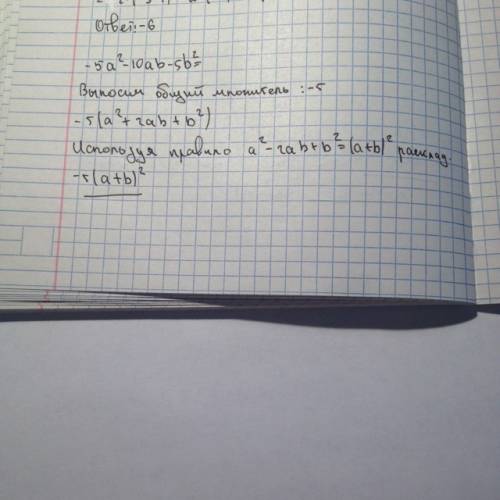 Ответ: -6
-5a²-10ab-5b²=
Выносим общий множитель : -5
-5(a²+2ab+b²)
Используя правило a²-2ab+b²=(a+b)² расклад.
-5(a+b)²